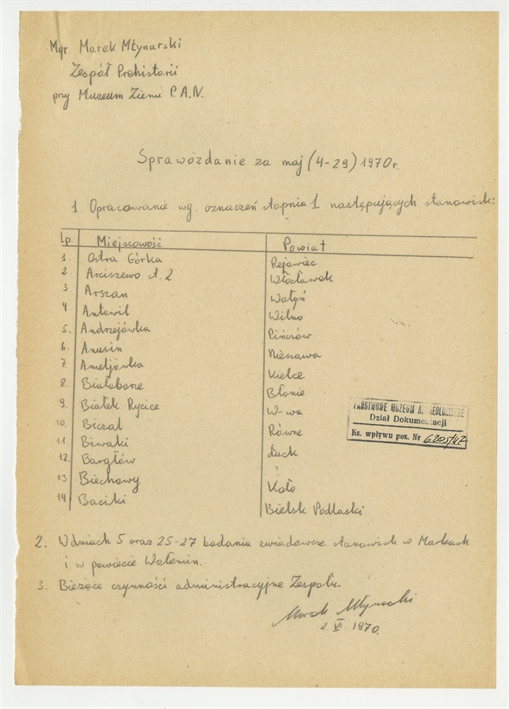 Mgr. Marek Młynarski
Zespół Prehistorii
przy Muzeum Ziemi P.A.N.
Sprawozdanie za maj (4-29) 1970 r.
1. Opracowanie wg. oznaczeń stopnia 1 następujących stanowisk:
Lp Miejscowość Powiat
1. Ostra Górka Rejowiec
2 Arciszewo st. 2 Włocławek
3 Arszan Wołyń
4 Antowil Wilno
5. Andrzejówka Pińczów
6. Anusin Nieszawa
7. Ameljówka Kielce
8. Białobone Błonie
9. Białek Rycice W-wa
10. Biczal Równe
11. Biwaki Łuck
12 Bargłów ?
13 Biechowy Koło
14 Baciki Bielsk Podlaski
PAŃSTWOWE MUZEUM ARCHEOLOGICZNE
Dział Dokumentacji
Ks. wpływu poz. Nr
2. W dniach 5 oraz 25-27 badania zwiadowcze stanowisk w Markach
i w powiecie Wołomin.
3. Bieżące czynności administracyjne Zespołu.
Marek Młynarski
2. VI 1970.